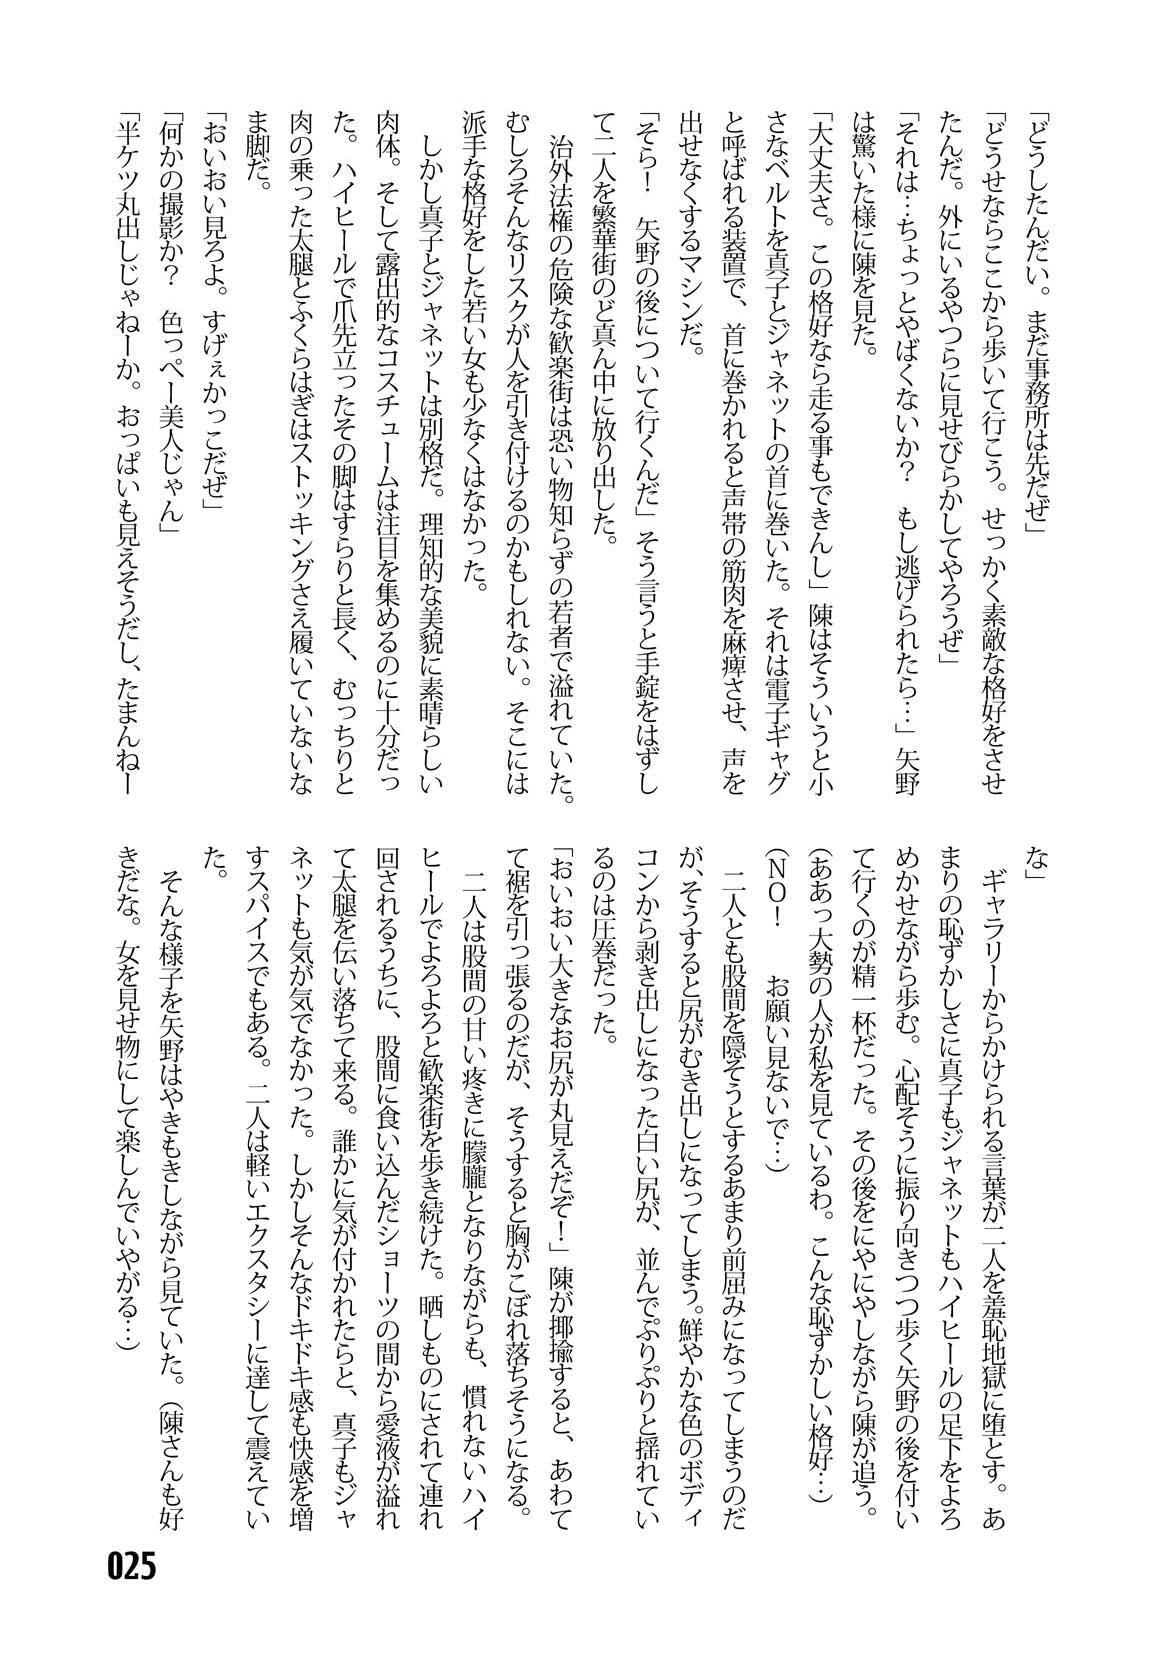 「どうしたんだい。まだ事務所は先だぜ」
「どうせならここから歩いて行こう。せっかく素敵な格好をさせ
たんだ。外にいるやつらに見せびらかしてやろうぜ」
「それは…ちょっとやばくないか？　もし逃げられたら…」矢野
は驚いた様に陳を見た。
「大丈夫さ。この格好なら走る事もできんし」陳はそういうと小
さなベルトを真子とジャネットの首に巻いた。それは電子ギャグ
と呼ばれる装置で、首に巻かれると声帯の筋肉を麻痺させ、声を
出せなくするマシンだ。
「そら！　矢野の後について行くんだ」そう言うと手錠をはずし
て二人を繁華街のど真ん中に放り出した。
　治外法権の危険な歓楽街は恐い物知らずの若者で溢れていた。
むしろそんなリスクが人を引き付けるのかもしれない。そこには
派手な格好をした若い女も少なくはなかった。
　しかし真子とジャネットは別格だ。理知的な美貌に素晴らしい
肉体。そして露出的なコスチュームは注目を集めるのに十分だっ
た。ハイヒールで爪先立ったその脚はすらりと長く、むっちりと
肉の乗った太腿とふくらはぎはストッキングさえ履いていないな
ま脚だ。
「おいおい見ろよ。すげぇかっこだぜ」
「何かの撮影か？　色っぺー美人じゃん」
「半ケツ丸出しじゃねーか。おっぱいも見えそうだし、たまんねー
な」
　ギャラリーからかけられる言葉が二人を羞恥地獄に堕とす。あ
まりの恥ずかしさに真子もジャネットもハイヒールの足下をよろ
めかせながら歩む。心配そうに振り向きつつ歩く矢野の後を付い
て行くのが精一杯だった。その後をにやにやしながら陳が追う。
（ああっ大勢の人が私を見ているわ。こんな恥ずかしい格好…）
（ＮＯ！　　お願い見ないで…）
　二人とも股間を隠そうとするあまり前屈みになってしまうのだ
が、そうすると尻がむき出しになってしまう。鮮やかな色のボディ
コンから剥き出しになった白い尻が、並んでぷりぷりと揺れてい
るのは圧巻だった。
「おいおい大きなお尻が丸見えだぞ！」陳が揶揄すると、あわて
て裾を引っ張るのだが、そうすると胸がこぼれ落ちそうになる。
　二人は股間の甘い疼きに朦朧となりながらも、慣れないハイ
ヒールでよろよろと歓楽街を歩き続けた。晒しものにされて連れ
回されるうちに、股間に食い込んだショーツの間から愛液が溢れ
て太腿を伝い落ちて来る。誰かに気が付かれたらと、真子もジャ
ネットも気が気でなかった。しかしそんなドキドキ感も快感を増
すスパイスでもある。二人は軽いエクスタシーに達して震えてい
た。
　そんな様子を矢野はやきもきしながら見ていた。（陳さんも好
きだな。女を見せ物にして楽しんでいやがる…）
025